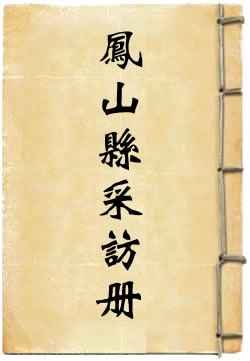 鳳山縣采訪册